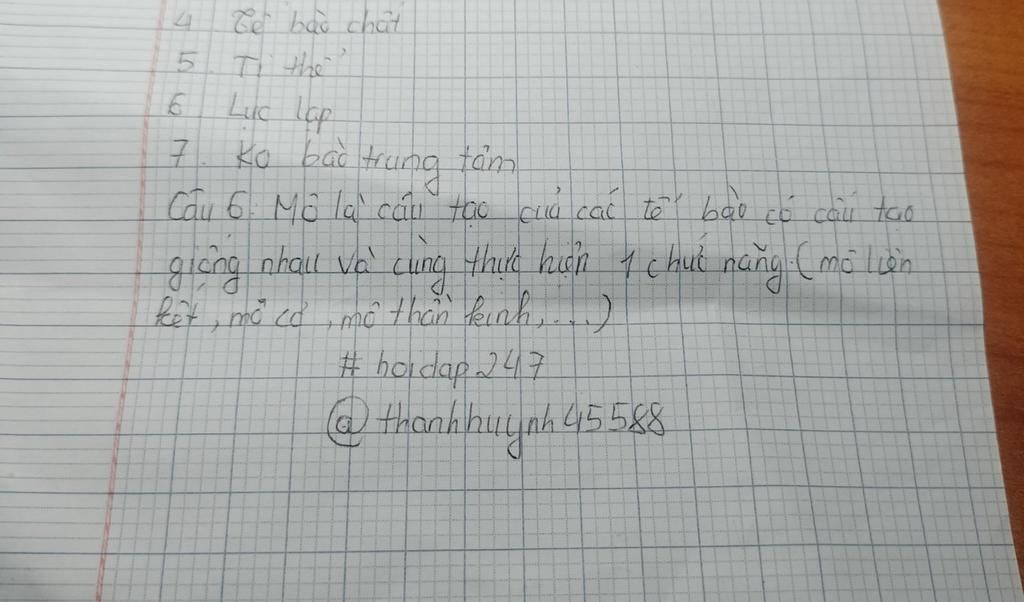 4 Tế bào chất
5. Ti thể
6 Lục lạp
7. Ko bào trung tâm
Câu 6: Mô là cấu tạo của các tế bào có cấu tạo
giống nhau và cùng thực hiện 1 chức năng. (mô liên
kết, mô cơ, mô thần kinh, ...)
# hoidap247
@thanhhuynh45588